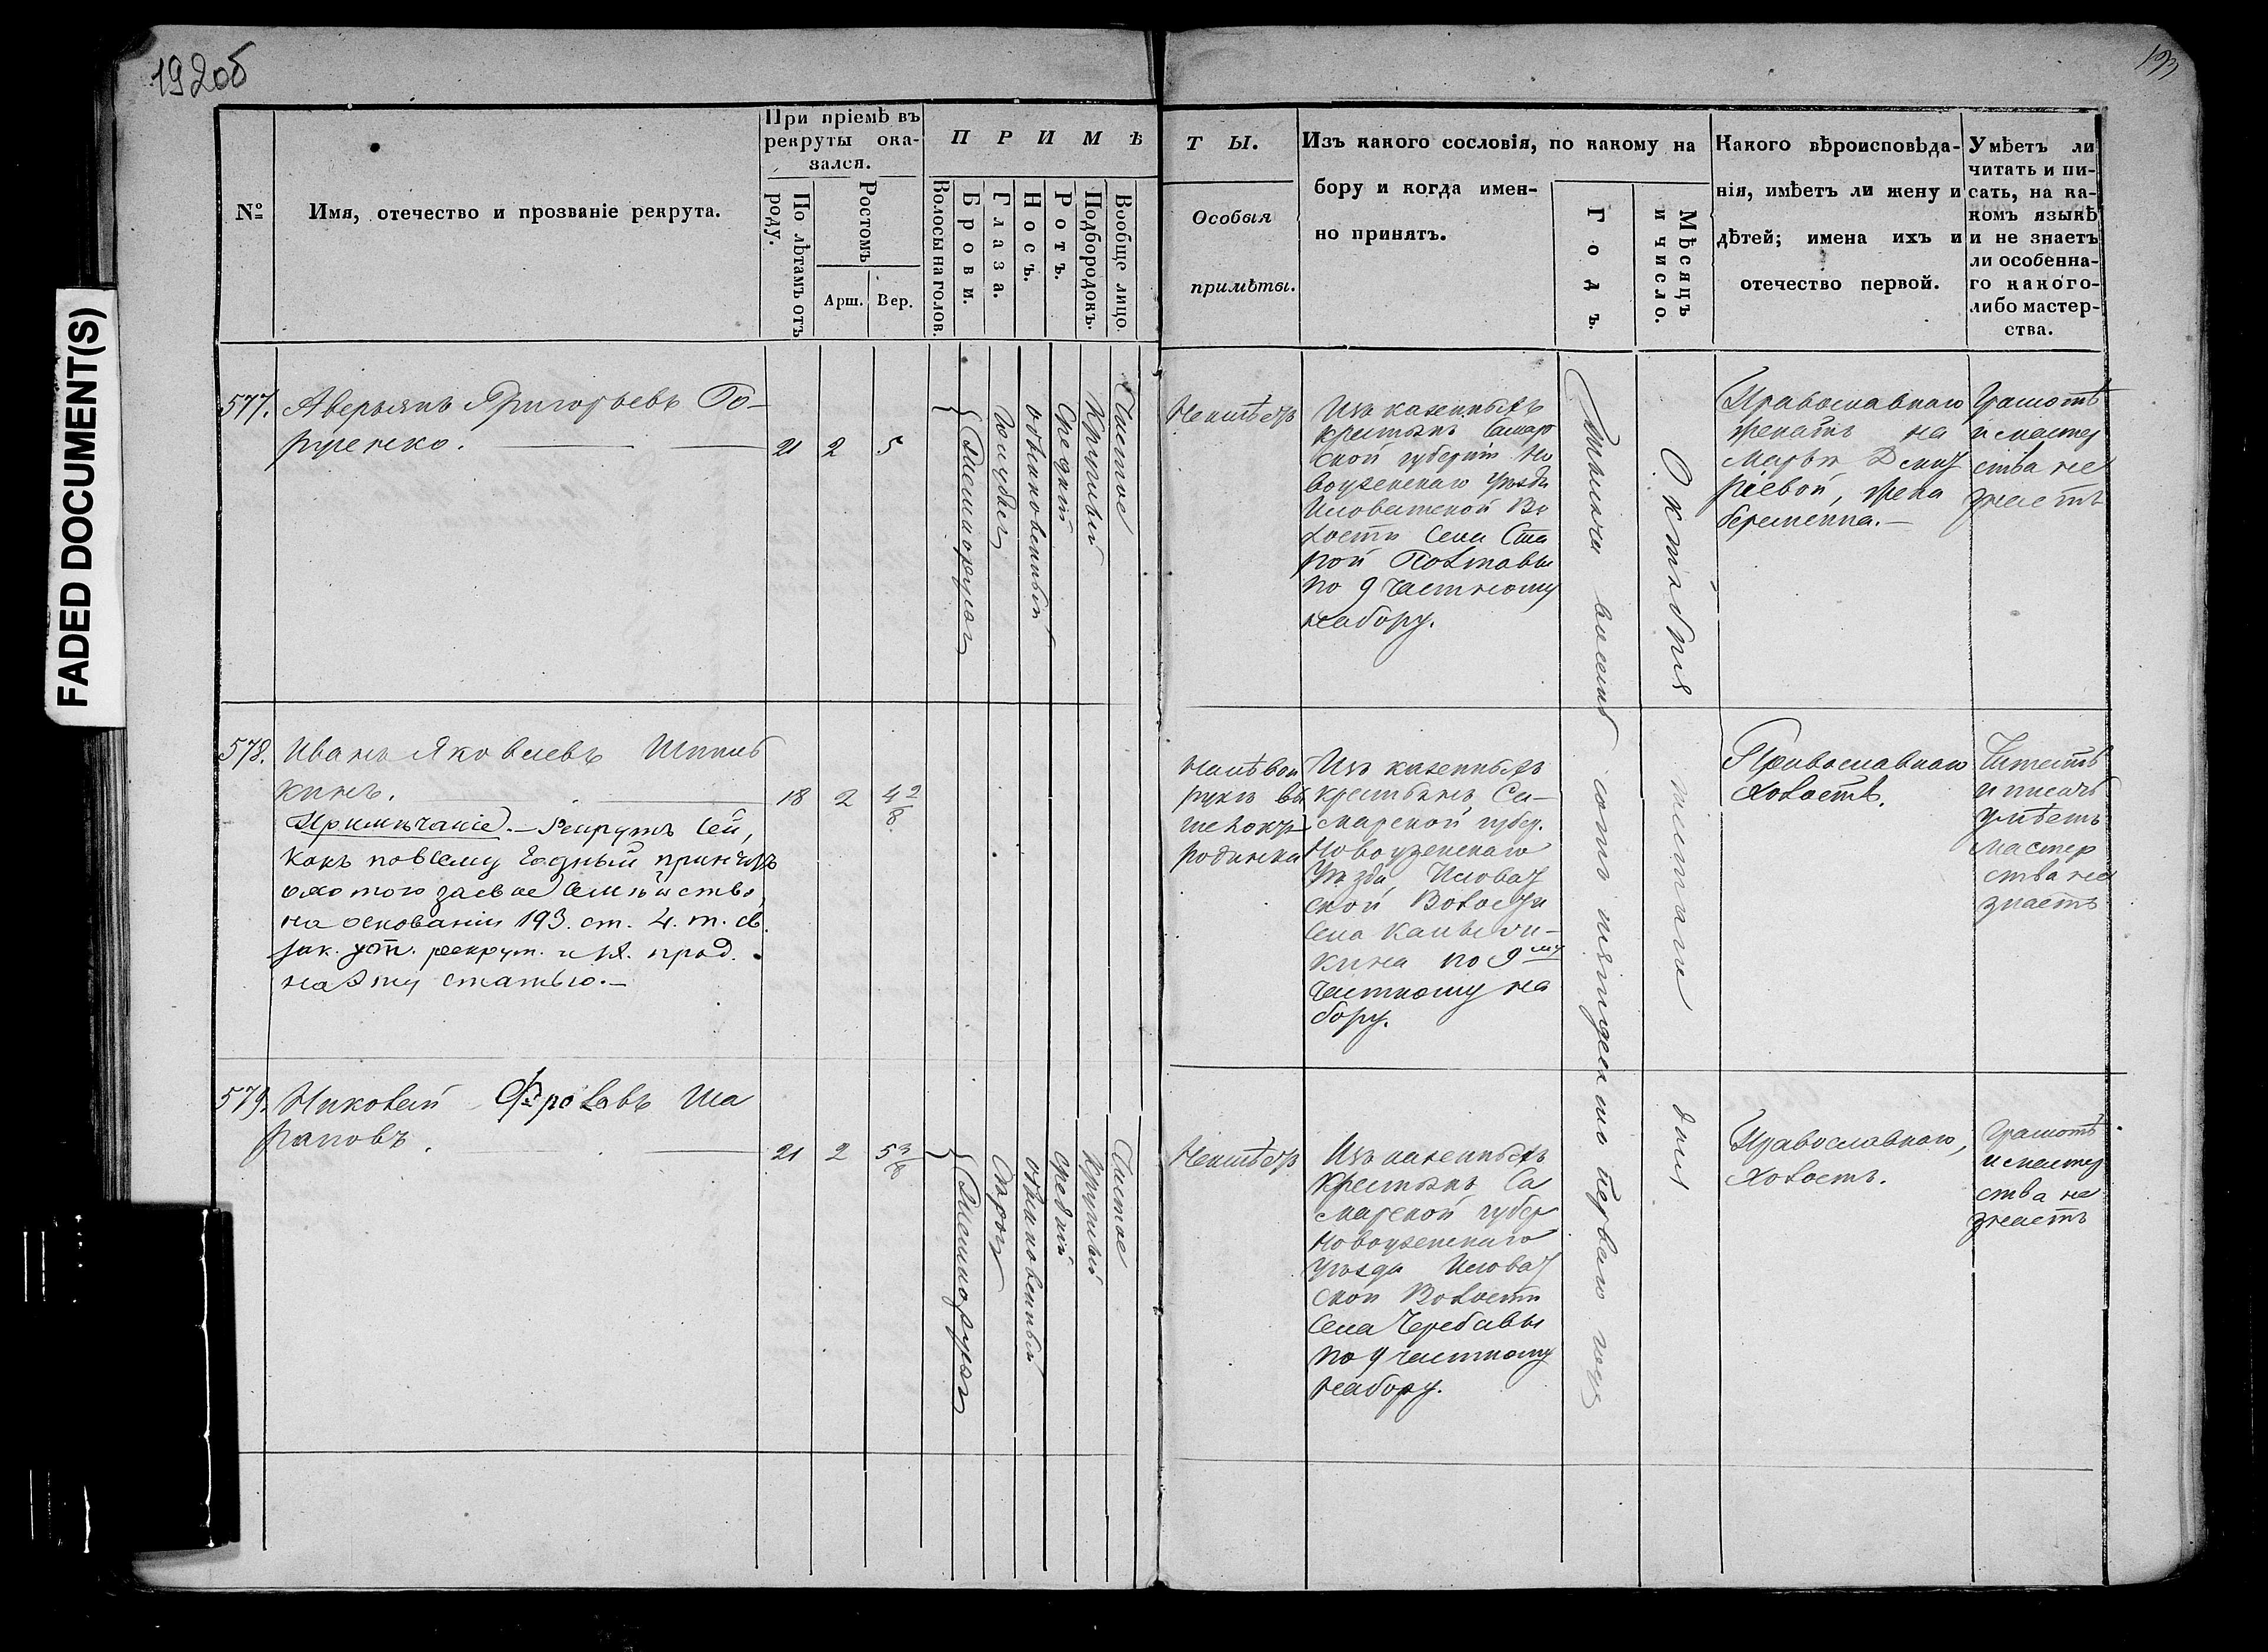 192об
193
FADED DOCUMENT(S)
№
Имя, отечество и прозваніе рекрута.
При пріемѣ въ
рекруты ока-
зался.
По лѣтамъ отъ
роду.
Ростомъ
Арш.
Вер.
ПРИМѢ
Волосы на голов.
Брови.
Глаза.
Носъ.
Ротъ.
Подбородокъ.
Вообще лицо.
ТЫ.
Особыя
примѣты.
Изъ какого сословія, по какому на
бору и когда имен-
но принятъ.
Годъ.
Мѣсяцъ
и число.
Какого вѣроисповѣда-
нія, имѣетъ ли жену и
дѣтей; имена ихъ и
отечество первой.
Умѣетъ ли
читать и пи-
сать, на ка-
комъ языкѣ
и не знаетъ
ли особенна-
го какого-
либо мастер-
ства.
577.
Аверьянъ Григорьевъ
21
2
5
Темнорусы
обыкновенный
Средній
Круглый
Чистое
Неимѣетъ
Изъ казенныхъ
крестьянъ Самар
ской губерніи Но
воузенскаго Уѣзда
Иловатской Во
лости Села Ста
рой Полтавы
по 9 частному
набору.
Тысяча восемь сотъ пятьдесято перваго года
Октября
дня
Православнаго
женатъ на
Марьѣ Дмит
ріевой, жена
беременна.—
Грамотѣ
и мастер
ства не
знаетъ
578.
Иванъ Яковлевъ
кинъ.
18
2
4 2/8
Примѣчаніе.— Рекрутъ сей,
какъ по всему годный принятъ
охотою за свое семѣйство,
на основаніи 193. ст. 4. т. св.
зак. уст. рекрут. и прод.
на эту статью.—
На лѣвой
рукѣ вы
родинка
Изъ казенныхъ
крестьянъ Са-
марской губер.
Новоузенскаго
Уѣзда Иловат
ской Волости
Села
кина по 9му
частному на
бору.
Православнаго
холостъ.
Читать
и писать
умѣетъ
мастер
ства не
знаетъ
579.
Николай Фроловъ Ша
раповъ.
21
2
5 3/8
Темнорусы
Сѣрые
обыкновенный
средній
круглый
Чистое
Неимѣетъ
Изъ казенныхъ
Крестьянъ Са
марской губер
Новоузенскаго
уѣзда Иловат
ской Волости
Села Черебавы
по 9 частному
набору.
Православнаго,
холостъ.
Грамотѣ
и мастер
ства не
знаетъ